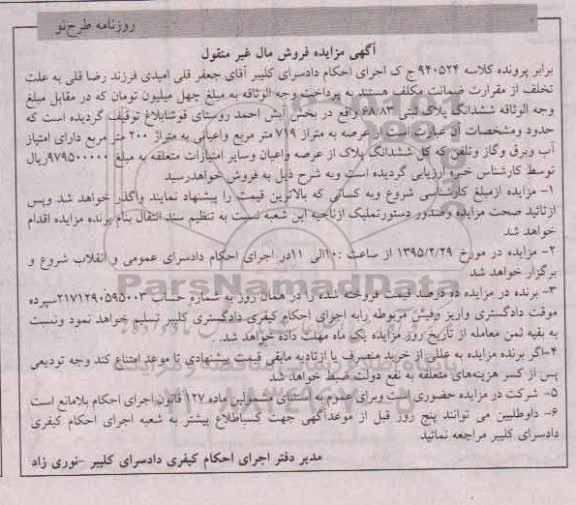 روزنامه طرح‌نو
آگهی مزایده فروش مال غیر منقول
برابر پرونده کلاسه ۹۴۰۵۲۴ ج ک اجرای احکام دادسرای کلیبر آقای جعفر قلی امیدی فرزند رضا قلی به علت
تخلف از مقرارت ضمانت مکلف هستند به پرداخت وجه الوثاقه به مبلغ چهل میلیون تومان که در مقابل مبلغ
وجه الوثاقه ششدانگ پلاک ثبتی ۶۸/۸۳ واقع در بخش آبش احمد روستای قوشابلاغ توقیف گردیده است که
حدود ومشخصات آن عبارت است از عرصه به متراژ ۷۱۹ متر مربع واعیانی به متراژ ۲۰۰ متر مربع دارای امتیاز
آب وبرق وگاز وتلفن که کل ششدانگ پلاک از عرصه واعیان وسایر امتیازات متعلقه به مبلغ ۹۷۹۵۰۰۰۰۰ریال
توسط کارشناس خبره ارزیابی گردیده است وبه شرح ذیل به فروش خواهدرسید
۱- مزایده ازمبلغ کارشناسی شروع وبه کسانی که بالاترین قیمت را پیشنهاد نمایند واگذار خواهد شد وپس
ازتائید صحت مزایده وصدور دستورتملیک ازناحیه این شعبه نسبت به تنظیم سند انتقال بنام برنده مزایده اقدام
خواهد شد
۲- مزایده در مورخ ۱۳۹۵/۲/۲۹ از ساعت ۱۰:الی ۱۱در اجرای احکام دادسرای عمومی و انقلاب شروع و
برگزار خواهد شد
ParsNamadData
۳- برنده در مزایده ده درصد قیمت فروخته شده را در همان روز به شماره حساب ۲۱۷۱۲۹۰۵۹۵۰۰۳سپرده
موقت دادگستری واریز وفیش مربوطه رابه اجرای احکام کیفری دادگستری کلیبر تسلیم خواهد نمود ونسبت
به بقیه ثمن معامله از تاریخ روز مزایده یک ماه مهلت داده خواهد شد.
۴-اگر برنده مزایده به عللی از خرید منصرف یا ازتادیه مابقی قیمت پیشنهادی تا موعد امتناع کند وجه تودیعی
پس از کسر هزینه‌های متعلقه به نفع دولت ضبط خواهد شد
۵- شرکت در مزایده حضوری است وبرای عموم به استثنای مشمولین ماده ۱۲۷ قانون اجرای احکام بلامانع است
۶- داوطلبین می توانند پنج روز قبل از موعدآگهی جهت کسباطلاع بیشتر به شعبه اجرای احکام کیفری
دادسرای کلیبر مراجعه نمائید
مدیر دفتر اجرای احکام کیفری دادسرای کلیبر -نوری زاد